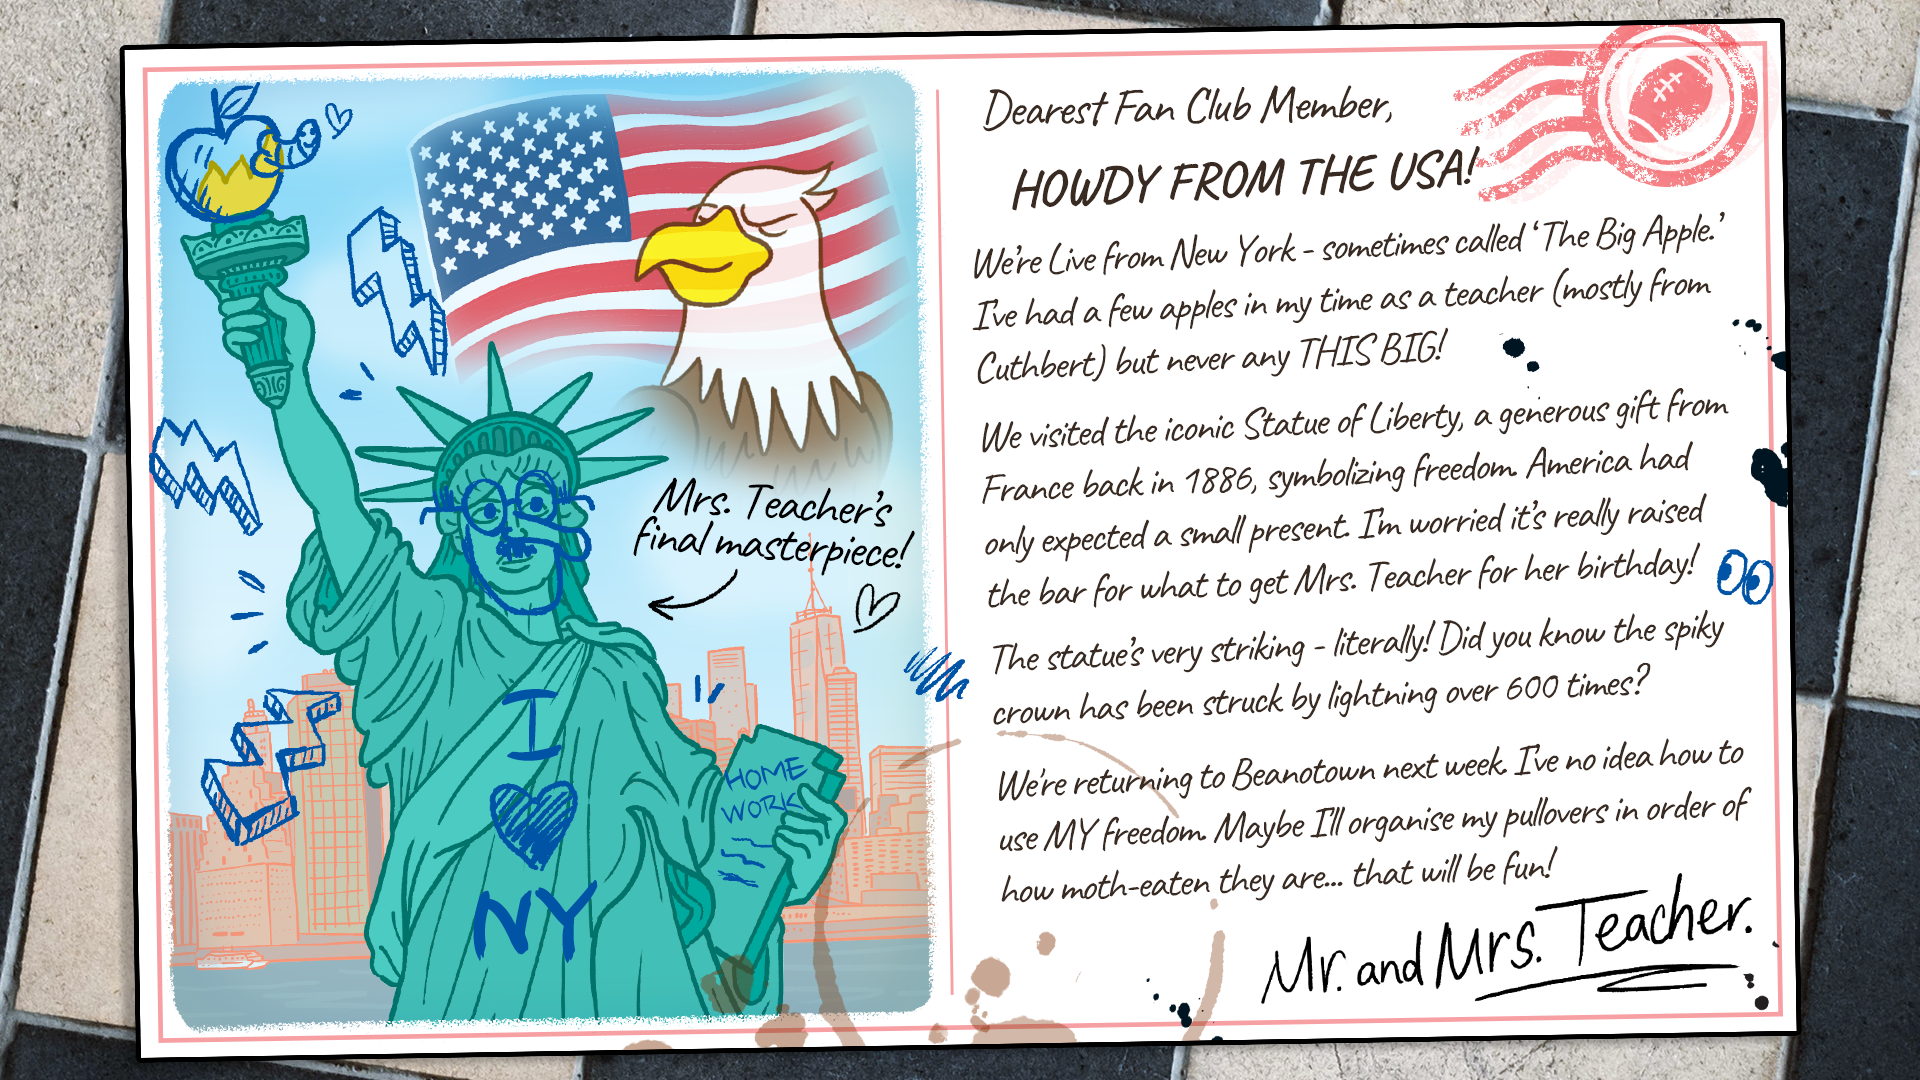 Dearest Fan Club Member,
HOWDY FROM THE USA!
We're Live from New York - sometimes called 'The Big Apple.'
I've had a few apples in my time as a teacher (mostly from
Cuthbert) but never any THIS BIG!
We visited the iconic Statue of Liberty, a generous gift from
France back in 1886, symbolizing freedom. America had
only expected a small present. I'm worried it's really raised
the bar for what to get Mrs. Teacher for her birthday!
The statue's very striking - literally! Did you know the spiky
crown has been struck by lightning over 600 times?
We're returning to Beanotown next week. I've no idea how to
use MY freedom. Maybe I'll organise my pullovers in order of
how moth-eaten they are... that will be fun!
Mr. and Mrs. Teacher.
Mrs. Teacher's
final masterpiece!
I
NY
HOME
WORK